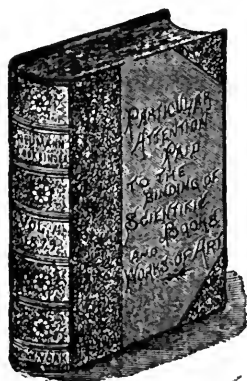 BOOKBINDER
VOL. VI.
PARTICULAR
ATTENTION
PAID
TO THE
BINDING OF
SCIENTIFIC
BOOKS
AND
WORKS OF ART